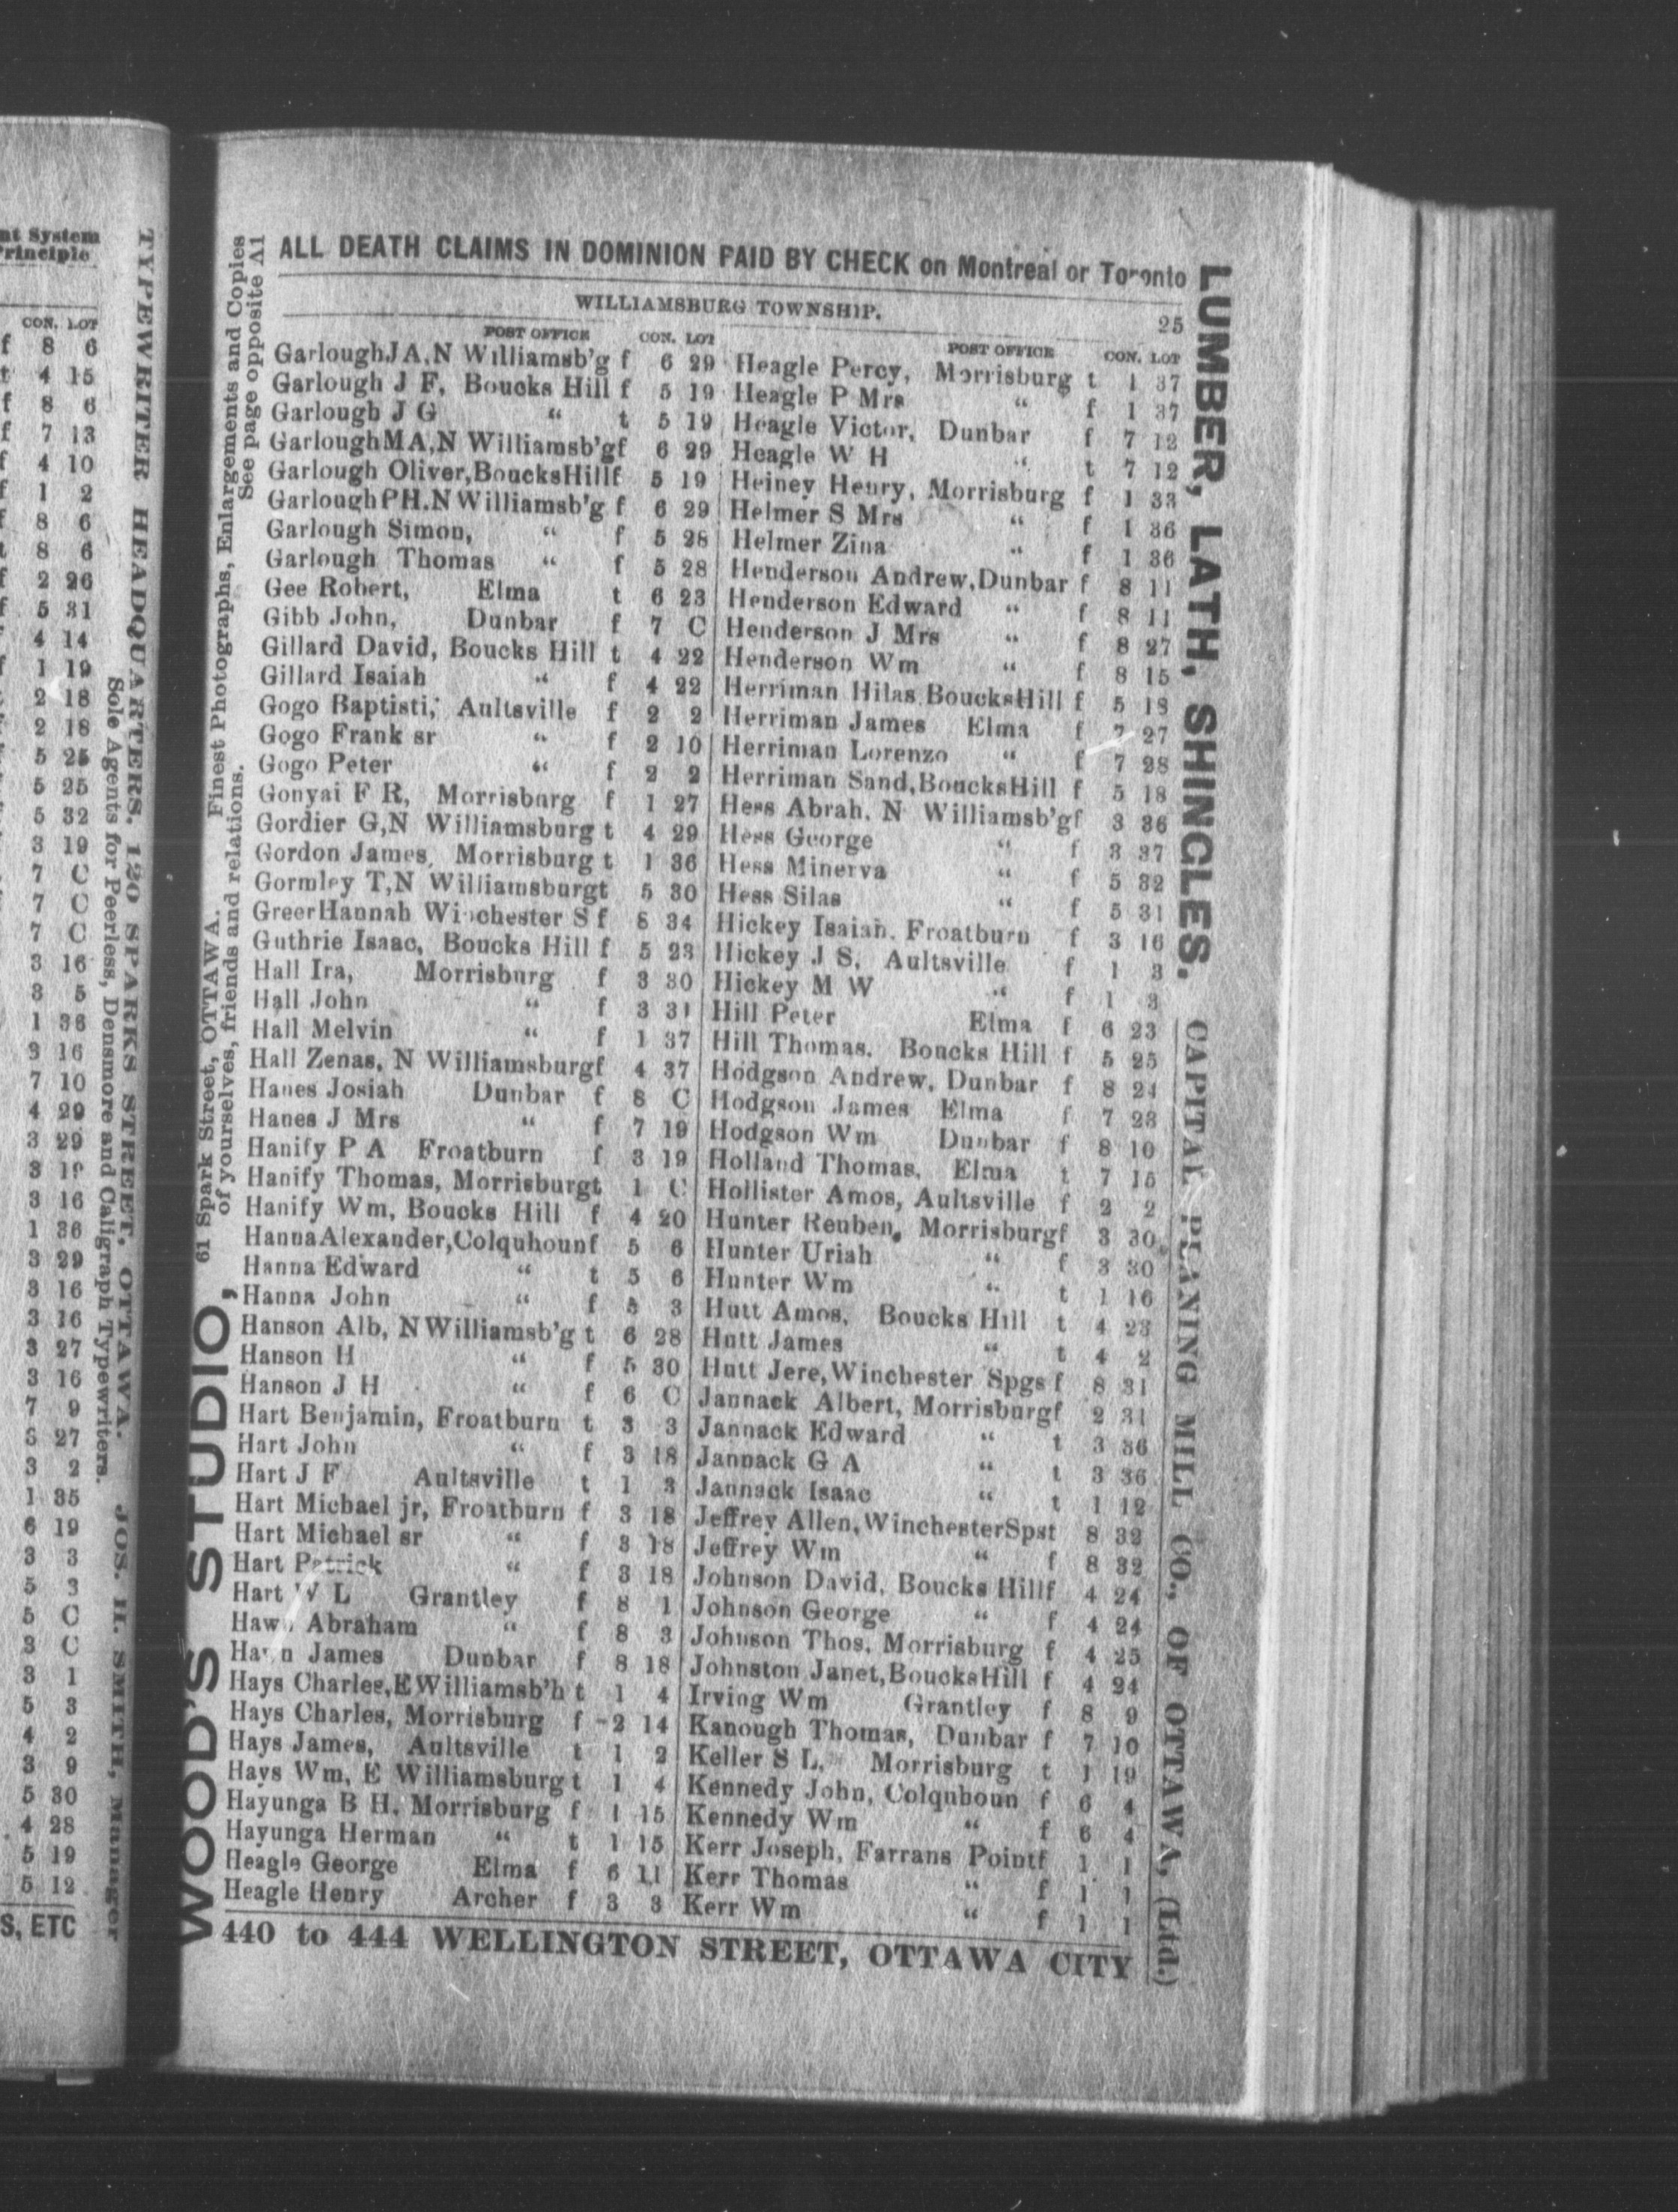 nt System
Principle
CON. LOT
f 8 6
t 4 15
f 8 6
f 7 13
f 4 10
f 1 2
f 8 6
t 8 6
f 2 26
f 5 31
4 14
f 1 19
2 18
2 18
5 25
5 25
5 32
3 19
7 C
7 C
7 C
3 16
3 5
1 36
3 16
7 10
4 29
3 29
3 19
3 16
1 36
3 29
3 16
3 16
3 27
3 16
7 9
3 27
3 2
1 35
6 19
3 3
5 3
5 C
3 C
3 1
5 3
4 2
3 9
5 30
4 28
5 19
5 12
S, ETC
TYPEWRITER HEADQUARTERS, 120 SPARKS STREET, OTTAWA. JOS. H. SMITH, Manager
Sole Agents for Peerless, Densmore and Caligraph Typewriters.
WOOD'S STUDIO,
61 Spark Street, OTTAWA. Finest Photographs, Enlargements and Copies
of yourselves, friends and relations. See page opposite A1
ALL DEATH CLAIMS IN DOMINION PAID BY CHECK on Montreal or Toronto
WILLIAMSBURG TOWNSHIP. 25
POST OFFICE CON. LOT
GarloughJA,N Williamsb'g f 6 29
Garlough J F, Boucks Hill f 5 19
Garlough J G " t 5 19
GarloughMA,N Williamsb'gf 6 29
Garlough Oliver,BoucksHillf 5 19
GarloughPH.NWilliamsb'g f 6 29
Garlough Simon, " f 5 28
Garlough Thomas " f 5 28
Gee Robert, Elma t 6 23
Gibb John, Dunbar f 7 C
Gillard David, Boucks Hill t 4 22
Gillard Isaiah " f 4 22
Gogo Baptisti, Aultsville f 2 2
Gogo Frank sr " f 2 10
Gogo Peter " f 2 2
Gonyai F R, Morrisburg f 1 27
Gordier G,N Williamsburg t 4 29
Gordon James, Morrisburg t 1 36
Gormley T,N Williamsburgt 5 30
GreerHannah Winchester S f 8 34
Guthrie Isaac, Boucks Hill f 5 23
Hall Ira, Morrisburg f 3 30
Hall John " f 3 31
Hall Melvin " f 1 37
Hall Zenas, N Williamsburgf 4 37
Hanes Josiah Dunbar f 8 C
Hanes J Mrs " f 7 19
Hanify P A Froatburn f 3 19
Hanify Thomas, Morrisburgt 1 C
Hanify Wm, Boucks Hill f 4 20
HannaAlexander,Colquhounf 5 6
Hanna Edward " t 5 6
Hanna John " f 5 3
Hanson Alb, NWilliamsb'g t 6 28
Hanson H " f 5 30
Hanson J H " f 6 C
Hart Benjamin, Froatburn t 3 3
Hart John " f 3 18
Hart J F Aultsville t 1 3
Hart Michael jr, Froatburn f 3 18
Hart Michael sr " f 3 18
Hart Patrick " f 3 18
Hart W L Grantley f 8 1
Abraham " f 8 3
James Dunbar f 8 18
Hays Charles,EWilliamsb'h t 1 4
Hays Charles, Morrisburg f 2 14
Hays James, Aultsville t 1 2
Hays Wm, E Williamsburg t 1 4
Hayunga B H, Morrisburg f 1 15
Hayunga Herman " t 1 15
Heagle George Elma f 6 11
Heagle Henry Archer f 3 3
POST OFFICE CON. LOT
Heagle Percy, Morrisburg t 1 37
Heagle P Mrs " f 1 37
Heagle Victor, Dunbar f 7 12
Heagle W H " t 7 12
Heiney Henry, Morrisburg f 1 33
Helmer S Mrs " f 1 36
Helmer Zina " f 1 36
Henderson Andrew,Dunbar f 8 11
Henderson Edward " f 8 11
Henderson J Mrs " f 8 27
Henderson Wm " f 8 15
Herriman Hilas BoucksHill f 5 18
Herriman James Elma f 7 27
Herriman Lorenzo " f 7 28
Herriman Sand,BoucksHill f 5 18
Hess Abrah, N Williamsb'gf 3 36
Hess George " f 3 37
Hess Minerva " f 5 32
Hess Silas " f 5 31
Hickey Isaiah, Froatburn f 3 16
Hickey J S, Aultsville f 1 3
Hickey M W " f 1 3
Hill Peter Elma f 6 23
Hill Thomas. Boucks Hill f 5 25
Hodgson Andrew, Dunbar f 8 24
Hodgson James Elma f 7 23
Hodgson Wm Dunbar f 8 10
Holland Thomas, Elma t 7 15
Hollister Amos, Aultsville f 2 2
Hunter Reuben, Morrisburgf 3 30
Hunter Uriah " f 3 30
Hunter Wm " t 1 16
Hutt Amos, Boucks Hill t 4 23
Hutt James " t 4 2
Hutt Jere,Winchester Spgs f 8 31
Jannack Albert, Morrisburgf 2 31
Jannack Edward " t 3 36
Jannack G A " t 3 36
Jannack Isaac " t 1 12
Jeffrey Allen,WinchesterSpst 8 32
Jeffrey Wm " f 8 32
Johnson David, Boucks Hillf 4 24
Johnson George " f 4 24
Johnson Thos. Morrisburg f 4 25
Johnston Janet,BoucksHill f 4 24
Irving Wm Grantley f 8 9
Kanough Thomas, Dunbar f 7 10
Keller S L, Morrisburg t 1 19
Kennedy John, Colquhoun f 6 4
Kennedy Wm " f 6 4
Kerr Joseph, Farrans Pointf 1 1
Kerr Thomas " f 1 1
Kerr Wm " f 1 1
440 to 444 WELLINGTON STREET, OTTAWA CITY
LUMBER, LATH, SHINGLES.
CAPITAL PLANING MILL CO., OF OTTAWA, (Ltd.)